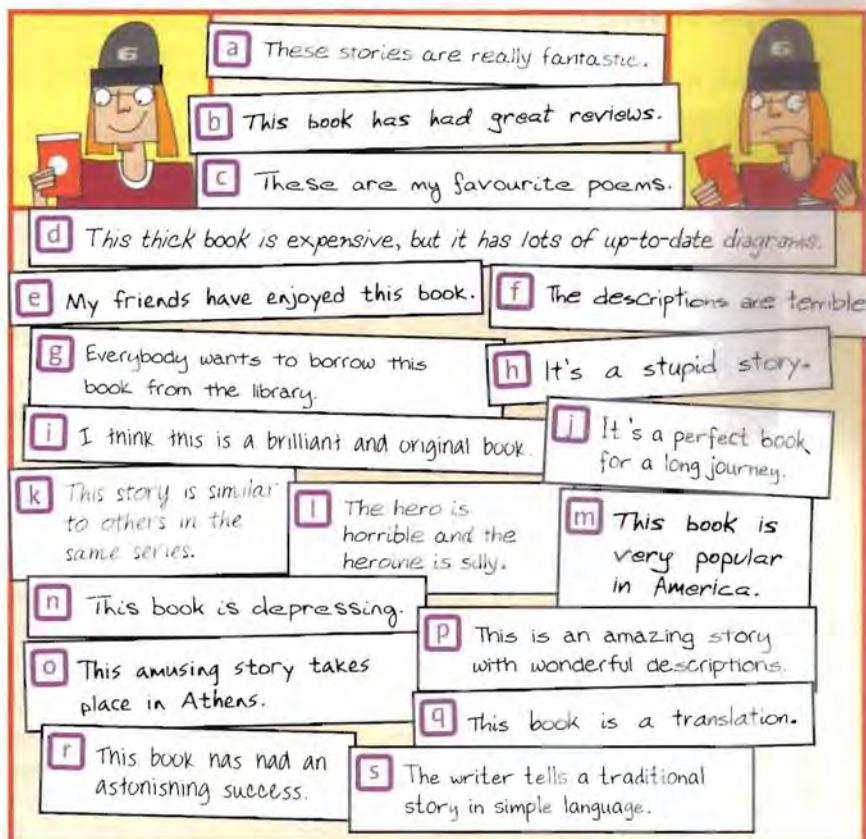 6
6
a These stories are really fantastic.
b This book has had great reviews.
c These are my favourite poems.
d This thick book is expensive, but it has lots of up-to-date diagrams.
e My friends have enjoyed this book.
f The descriptions are terrible
g Everybody wants to borrow this
book from the library.
h It's a stupid story.
i I think this is a brilliant and original book.
j It's a perfect book
for a long journey.
k This story is similar
to others in the
same series.
l The hero is
horrible and the
heroine is silly.
m This book is
very popular
in America.
n This book is depressing.
o This amusing story takes
place in Athens.
p This is an amazing story
with wonderful descriptions.
q This book is a translation.
r This book has had an
astonishing success.
s The writer tells a traditional
story in simple language.